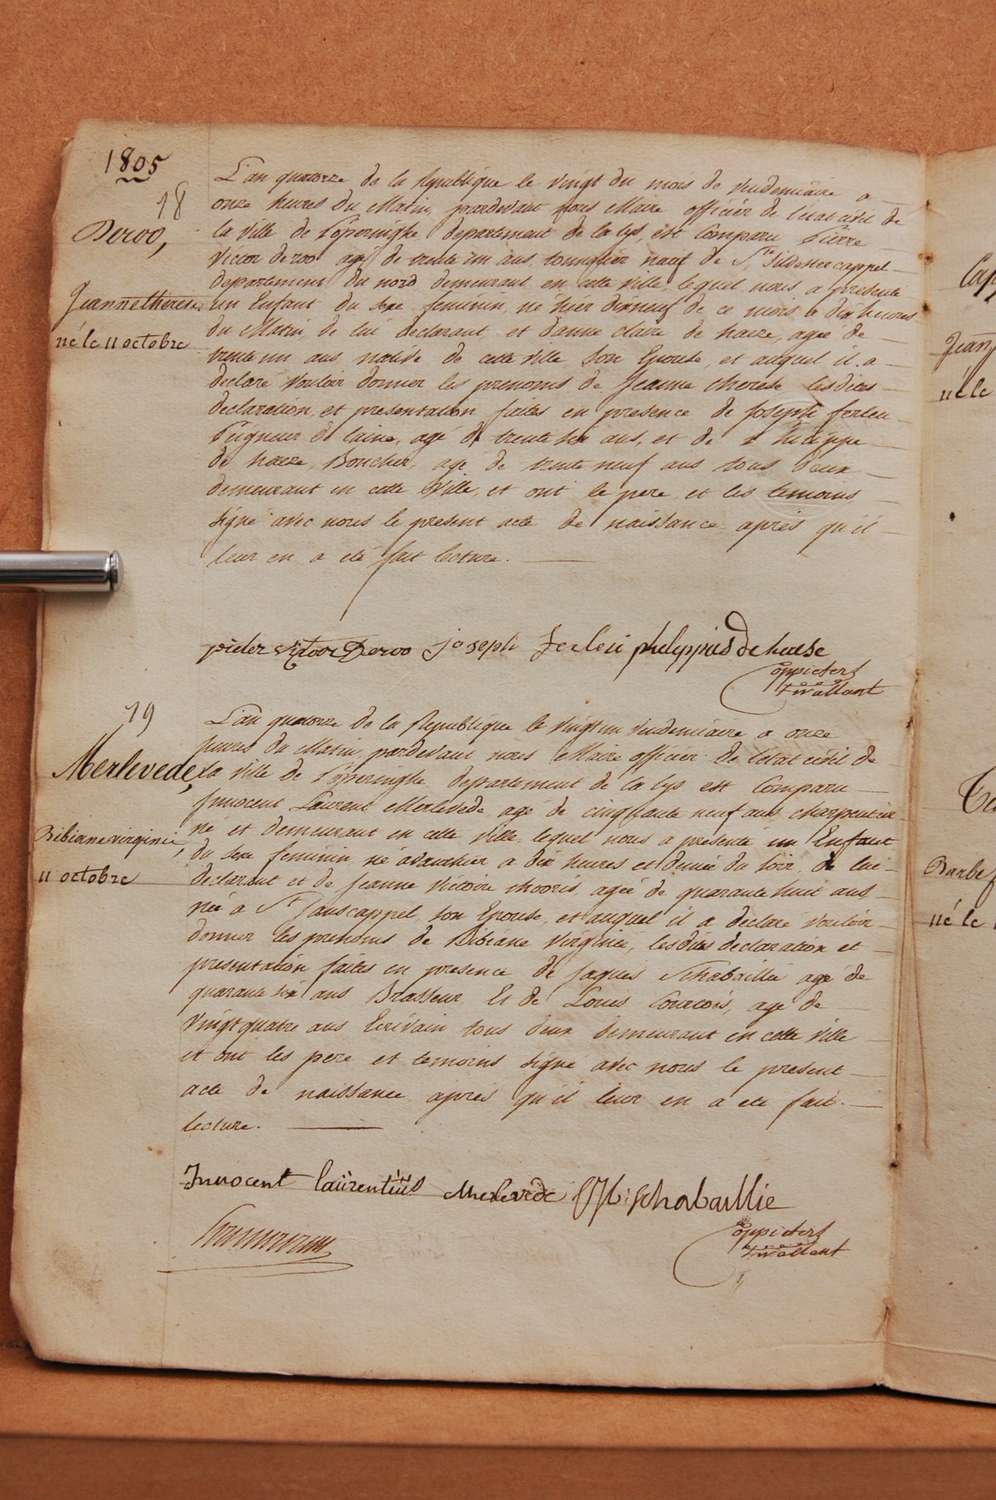 1805
18
Deroo,
Jeanne therese
né le 11 octobre
L'an quatorze de la Republique le vingt du mois de vendemiaire a
onze heures du Matin, pardevant nous Maire officier de l'etat civil de
la ville de Poperinghe departement de la lys, est Comparu Pierre
Victor deroo agé de trente un ans tonnelier natif de Ste Sildestercappel
departement du nord demeurant en cette ville lequel nous a presente
un Enfant du sexe feminin, ne hier dixneuf de ce mois a dix heures
du Matin de lui declarant et d'anne claire de haeze, agee de
trente un ans native de cette ville son Epouse, et auquel il a
declaré vouloir donner les prenoms de Jeanne therese lesdites
declaration et presentation faites en presence de Joseph ferleu
Peigneur de laine, agé de trente six ans, et de Philippe
de haeze, Boucher, age de trente neuf ans tous deux
demeurant en cette Ville, et ont le pere et les temoins
signe avec nous le present acte de naissance après qu'il
leur en a eté fait lecture.
pieter victoor Deroo joseph ferleu philippus de haese
oppieters
Wallant
19
Merlevede,
Bibianne virginie,
11 octobre
L'an quatorze de la Republique le vingt un vendemiaire a onze
heures du Matin, pardevant nous Maire officier de l'etat civil de
la ville de Poperinghe departement de la lys est Comparu
Innocent Laurent Merlevede age de cinquante neuf ans charpentier
né et demeurant en cette ville lequel nous a presente un Enfant
du sexe feminin né avanthier a dix heures et demie du soir, de lui
declarant et de Jeanne Victoire thooris, agée de quarante huit ans
née a St Janscappel, son Epouse, et auquel il a declare vouloir
donner les prenoms de Bibiane Virginie, lesdites declaration et
presentation faites en presence de Jaques Schabaillie age de
quarante six ans Brasseur Et de Louis Coucois, age de
vingtquatre ans Ecrivain tous deux demeurant en cette ville
et ont les pere et temoins signe avec nous le present
acte de naissance après qu'il leur en a ete fait
lecture.
Innocent laürentiüs Merlevede Schabaillie
oppieters
Wallant
Jeann
né le
Barbe
né le